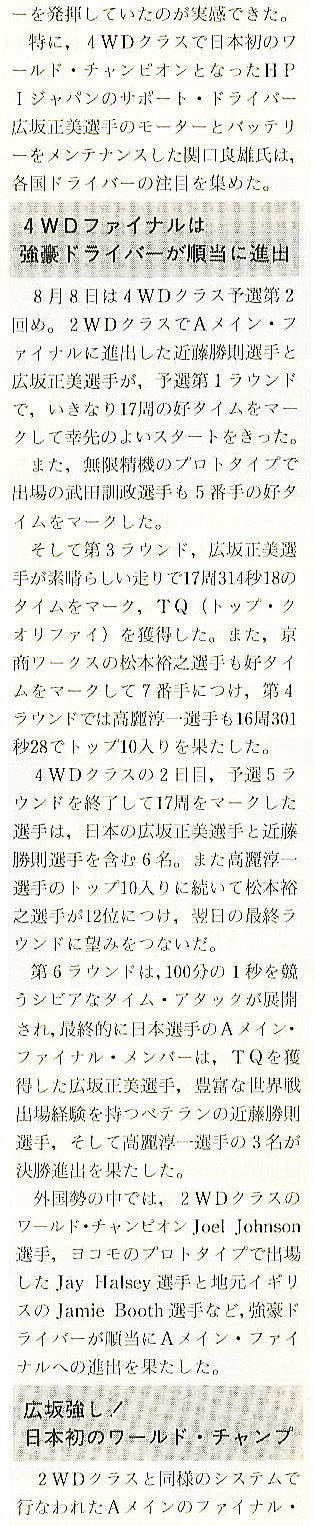 ーを発揮していたのが実感できた。
　特に，４WDクラスで日本初のワ
ールド・チャンピオンとなったＨＰ
Ｉジャパンのサポート・ドライバー
広坂正美選手のモーターとバッテリ
ーをメンテナンスした関口良雄氏は，
各国ドライバーの注目を集めた。
４WDファイナルは
強豪ドライバーが順当に進出
　８月８日は４WDクラス予選第２
回め。２WDクラスでＡメイン・フ
ァイナルに進出した近藤勝則選手と
広坂正美選手が，予選第１ラウンド
で，いきなり17周の好タイムをマー
クして幸先のよいスタートをきった。
　また，無限精機のプロトタイプで
出場の武田訓政選手も５番手の好タ
イムをマークした。
　そして第３ラウンド，広坂正美選
手が素晴らしい走りで17周314秒18の
タイムをマーク，ＴＱ（トップ・ク
オリファイ）を獲得した。また，京
商ワークスの松本裕之選手も好タイ
ムをマークして７番手につけ，第４
ラウンドでは高麗淳一選手も16周301
秒28でトップ10入りを果たした。
　４WDクラスの２日目，予選５ラ
ウンドを終了して17周をマークした
選手は，日本の広坂正美選手と近藤
勝則選手を含む６名。また高麗淳一
選手のトップ10入りに続いて松本裕
之選手が12位につけ，翌日の最終ラ
ウンドに望みをつないだ。
　第６ラウンドは，100分の１秒を競
うシビアなタイム・アタックが展開
され，最終的に日本選手のＡメイン・
ファイナル・メンバーは，ＴＱを獲
得した広坂正美選手，豊富な世界戦
出場経験を持つベテランの近藤勝則
選手，そして高麗淳一選手の３名が
決勝進出を果たした。
　外国勢の中では，２WDクラスの
ワールド・チャンピオン Joel Johnson
選手，ヨコモのプロトタイプで出場
した Jay Halsey 選手と地元イギリ
スの Jamie Booth 選手など，強豪ド
ライバーが順当にＡメイン・ファイ
ナルへの進出を果たした。
広坂強し！
日本初のワールド・チャンプ
　２WDクラスと同様のシステムで
行なわれたＡメインのファイナル・